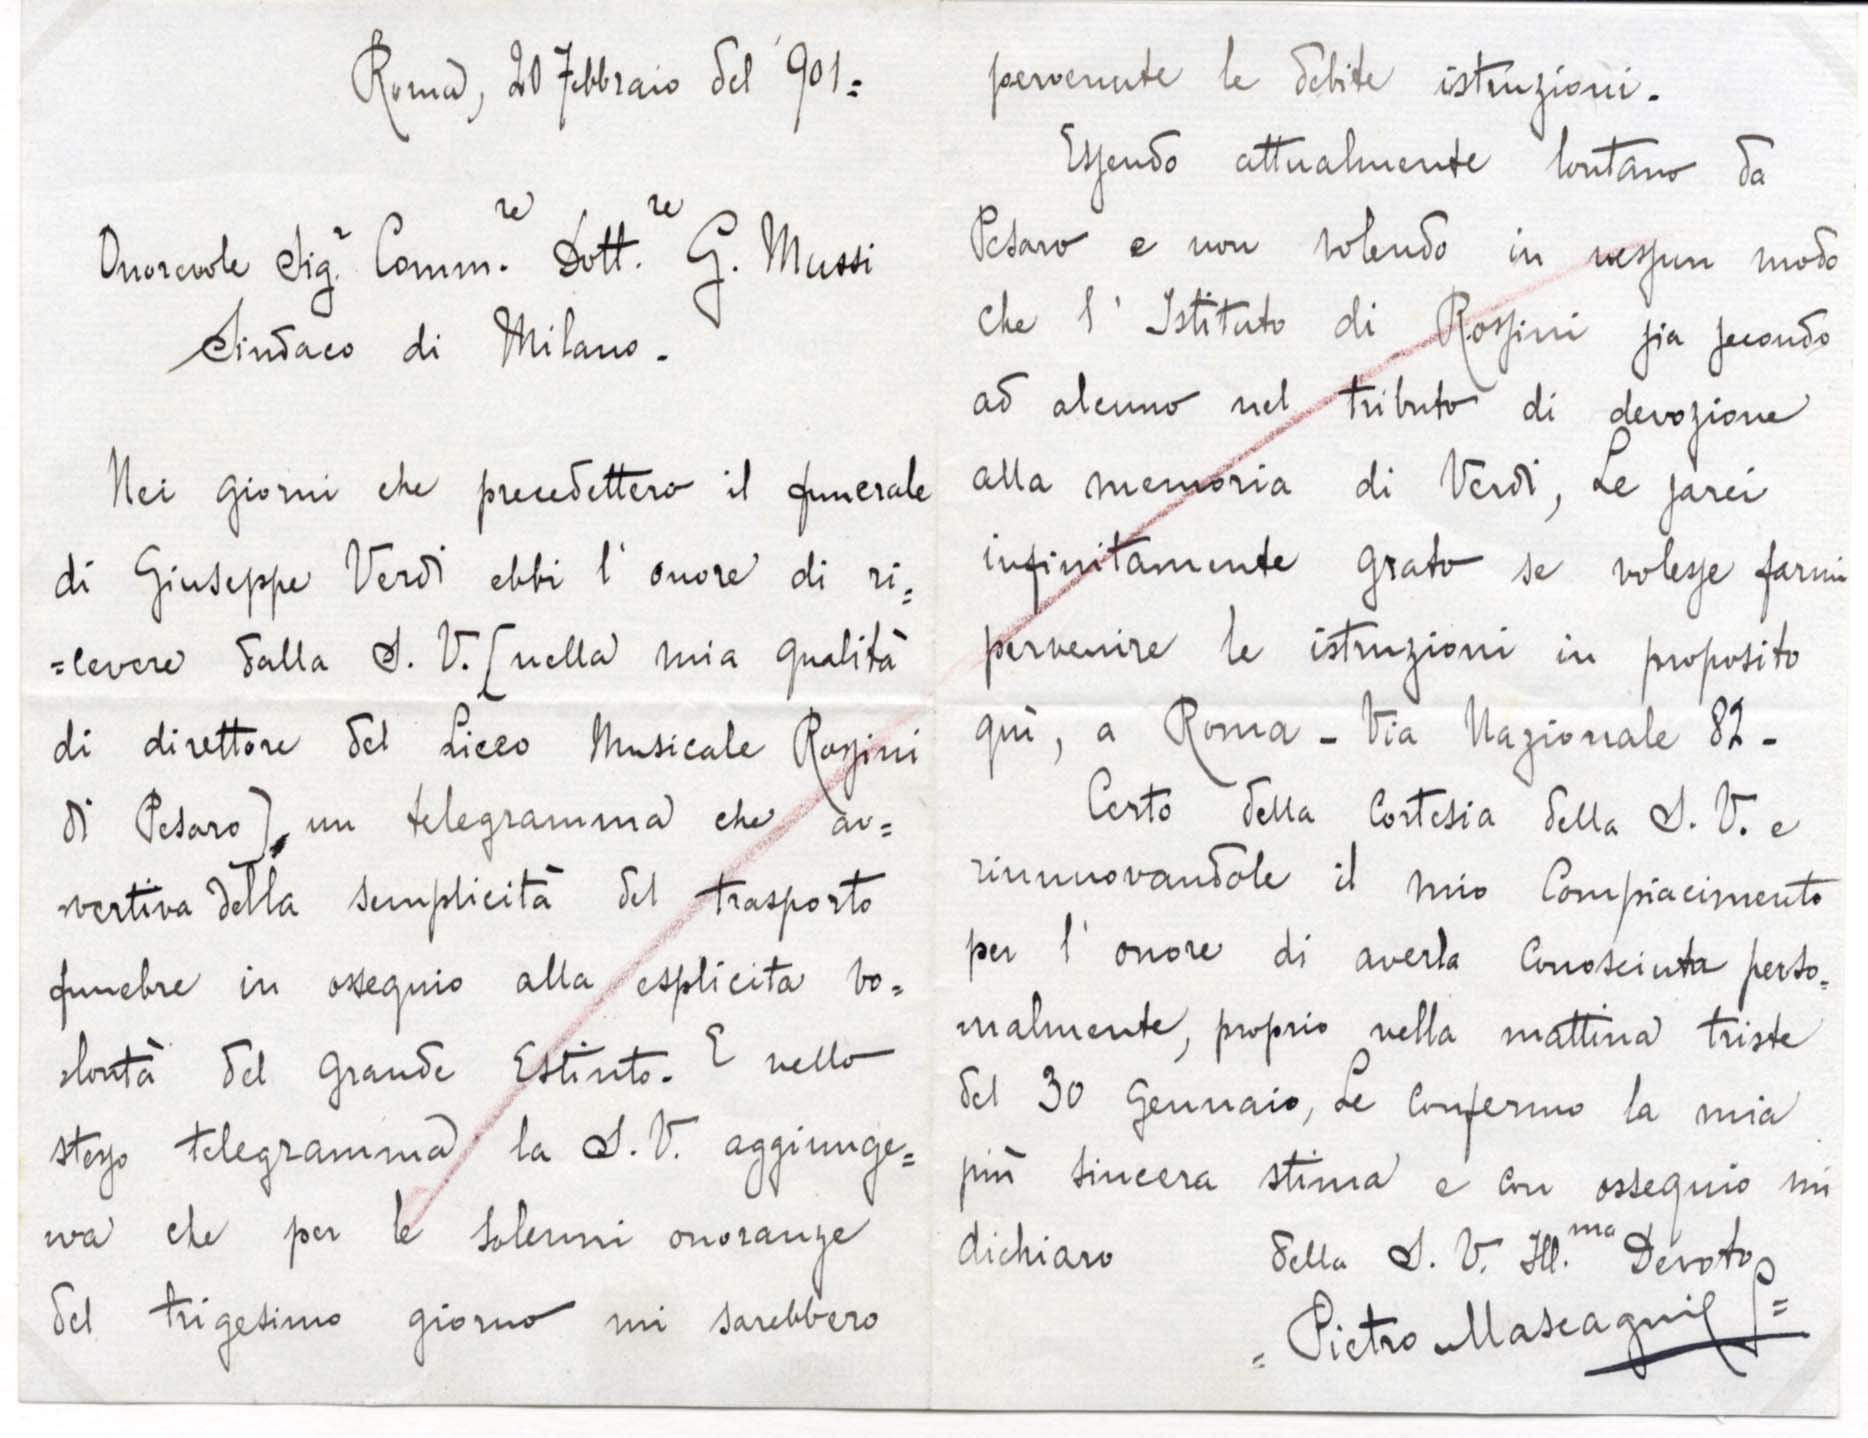 Roma, 20 Febbraio del '901=
Onorevole Sig.r Comm.re Dott.re G. Mussi
Sindaco di Milano.
Nei giorni che precedettero il funerale
di Giuseppe Verdi ebbi l'onore di ri=
=cevere dalla S. V. [nella mia qualità
di direttore del Liceo Musicale Rossini
di Pesaro], un telegramma che av=
vertiva della semplicità del trasporto
funebre in ossequio alla esplicita vo=
lontà del grande Estinto. E nello
stesso telegramma la S. V. aggiunge=
va che per le solenni onoranze
del trigesimo giorno mi sarebbero
pervenute le debite istruzioni.
Essendo attualmente lontano da
Pesaro e non volendo in nessun modo
che l'Istituto di Rossini sia secondo
ad alcuno nel tributo di devozione
alla memoria di Verdi, Le sarei
infinitamente grato se volesse farmi
pervenire le istruzioni in proposito
quì, a Roma - Via Nazionale 82 -
Certo della cortesia della S. V. e
rinnuovandole il mio compiacimento
per l'onore di averla conosciuta perso=
nalmente, proprio nella mattina triste
del 30 Gennaio, Le confermo la mia
più sincera stima e con ossequio mi
dichiaro della S. V. Ill.ma Devoto
= Pietro Mascagni =